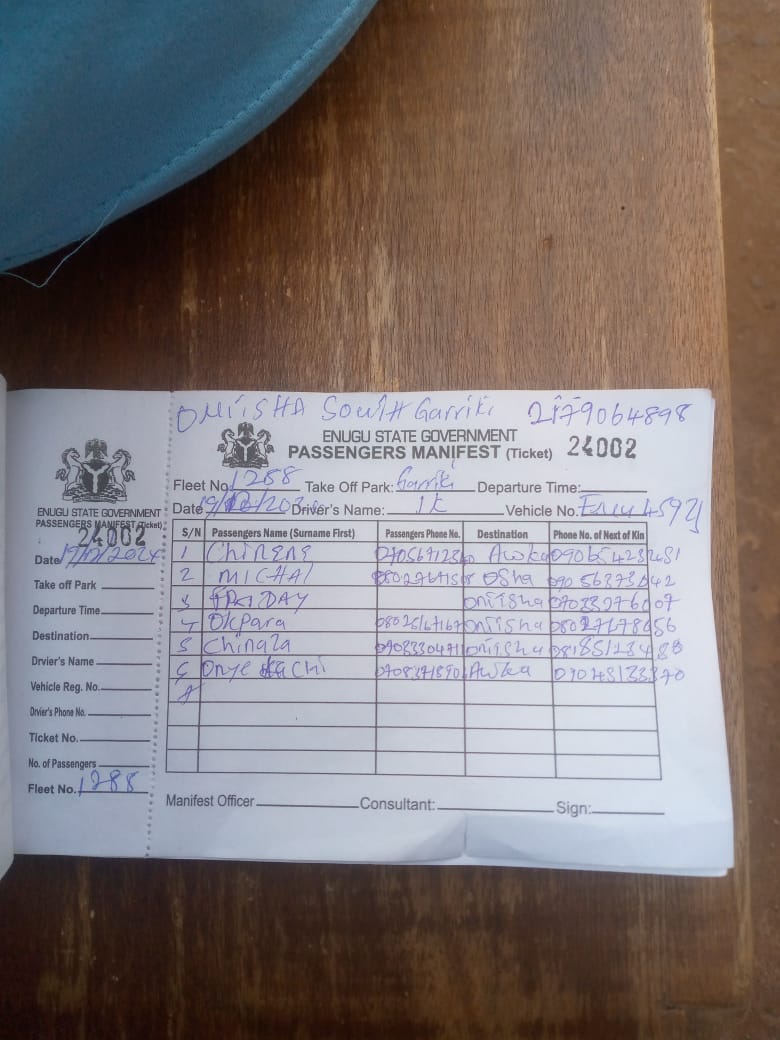 ONIISHA South Garriki 2179064898
ENUGU STATE GOVERNMENT
PASSENGERS MANIFEST (Ticket) 24002
Fleet No. 1288 Take Off Park: Garriki Departure Time:
Date 19/12/2024 Driver's Name: IK Vehicle No.
S/N Passengers Name (Surname First) Passengers Phone No. Destination Phone No. of Next of Kin
1 Awka
2 MICHAL Osha 09056373042
3 FRIDAY Oniisha 07033276007
4 Okpara Oniisha
5 Chinaza Oniisha
6 Onyekachi Awka
Manifest Officer Consultant: Sign:
ENUGU STATE GOVERNMENT
PASSENGERS MANIFEST (Ticket)
24002
Date 19/12/2024
Take off Park
Departure Time
Destination
Drvier's Name
Vehicle Reg. No.
Drvier's Phone No.
Ticket No.
No. of Passengers
Fleet No. 1288